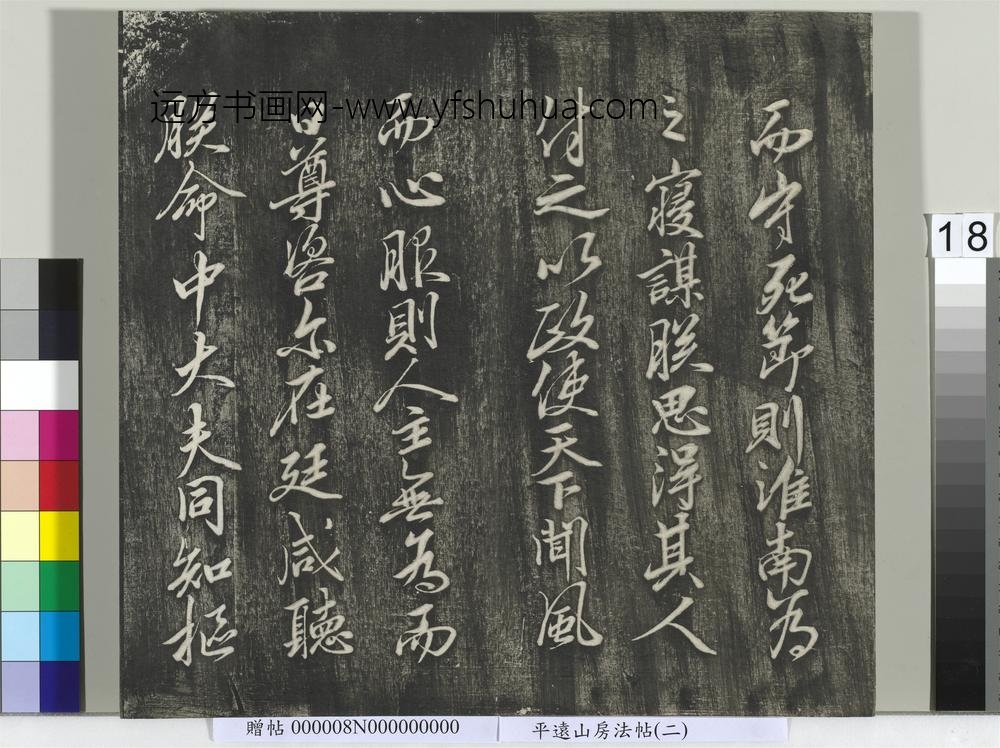 而守死節則淮南為
之寢謀朕思得其人
付之以政使天下聞風
而心服則人主無為而
日尊咨尔在廷咸聽
朕命中大夫同知樞
远方书画网-www.yfshuhua.com
18
贈帖 000008N000000000
平遠山房法帖(二)